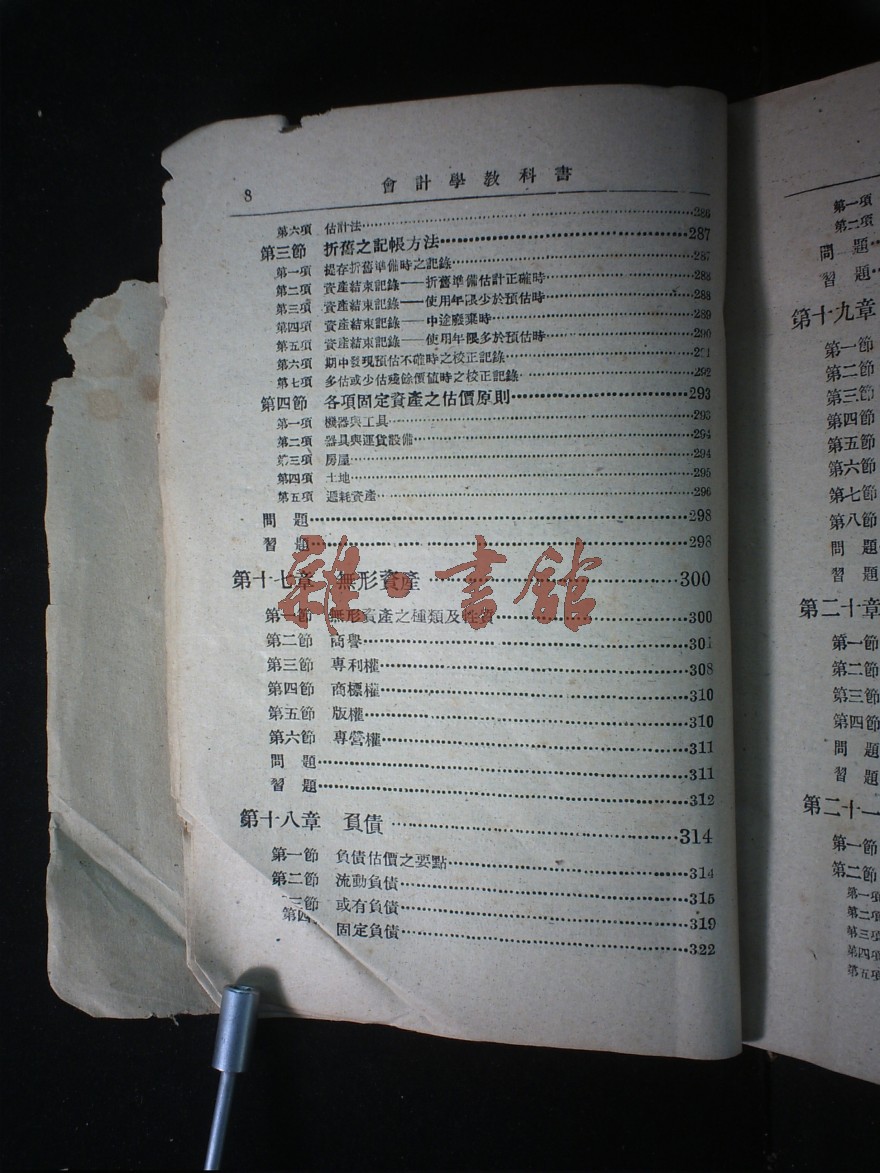 8 會計學教科書
第六項 估計法……286
第三節 折舊之記帳方法……287
第一項 提存折舊準備時之記錄……287
第二項 資產結束記錄——折舊準備估計正確時……288
第三項 資產結束記錄——使用年限少於預估時……288
第四項 資產結束記錄——中途廢棄時……289
第五項 資產結束記錄——使用年限多於預估時……290
第六項 期中發現預估不確時之校正記錄……291
第七項 多估或少估殘餘價值時之校正記錄……292
第四節 各項固定資產之估價原則……293
第一項 機器與工具……293
第二項 器具與運貨設備……294
第三項 房屋……294
第四項 土地……295
第五項 遞耗資產……296
問題……298
習題……298
第十七章 無形資產……300
第一節 無形資產之種類及性質……300
第二節 商譽……301
第三節 專利權……308
第四節 商標權……310
第五節 版權……310
第六節 專營權……311
問題……311
習題……312
第十八章 負債……314
第一節 負債估價之要點……314
第二節 流動負債……315
三節 或有負債……319
第四 固定負債……322
雜·書館
第一項
第二項
問題
習題
第十九章
第一節
第二節
第三節
第四節
第五節
第六節
第七節
第八節
問題
習題
第二十章
第一節
第二節
第三節
第四節
問題
習題
第二十一
第一節
第二節
第一項
第二項
第三項
第四項
第五項